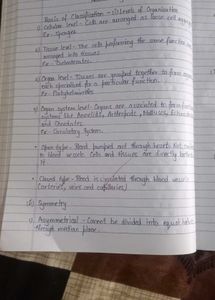 Basis of Classification - i) Levels of Organisation
i) Cellular level - Cells are arranged as loose cell aggregates
Ex - Sponges
ii) Tissue level - The cells performing the same function are
arranged into tissues
Ex - Coelenterates.
iii) Organ level - Tissues are grouped together to form organs
each specialised for a particular function.
Ex - Platyhelminthes
iv) Organ system level - Organs are associated to form functional
systems like Annelids, Arthropods, Molluscs, Echinoderms
and Chordates.
Ex - Circulatory System.
Open type - Blood pumped out through heart. Not
to blood vessels. Cells and tissues are directly
it
Closed type - Blood is circulated through blood vessels
(arteries, veins and capillaries)
Symmetry
i) Asymmetrical - Cannot be divided into equal halves
through median plane.